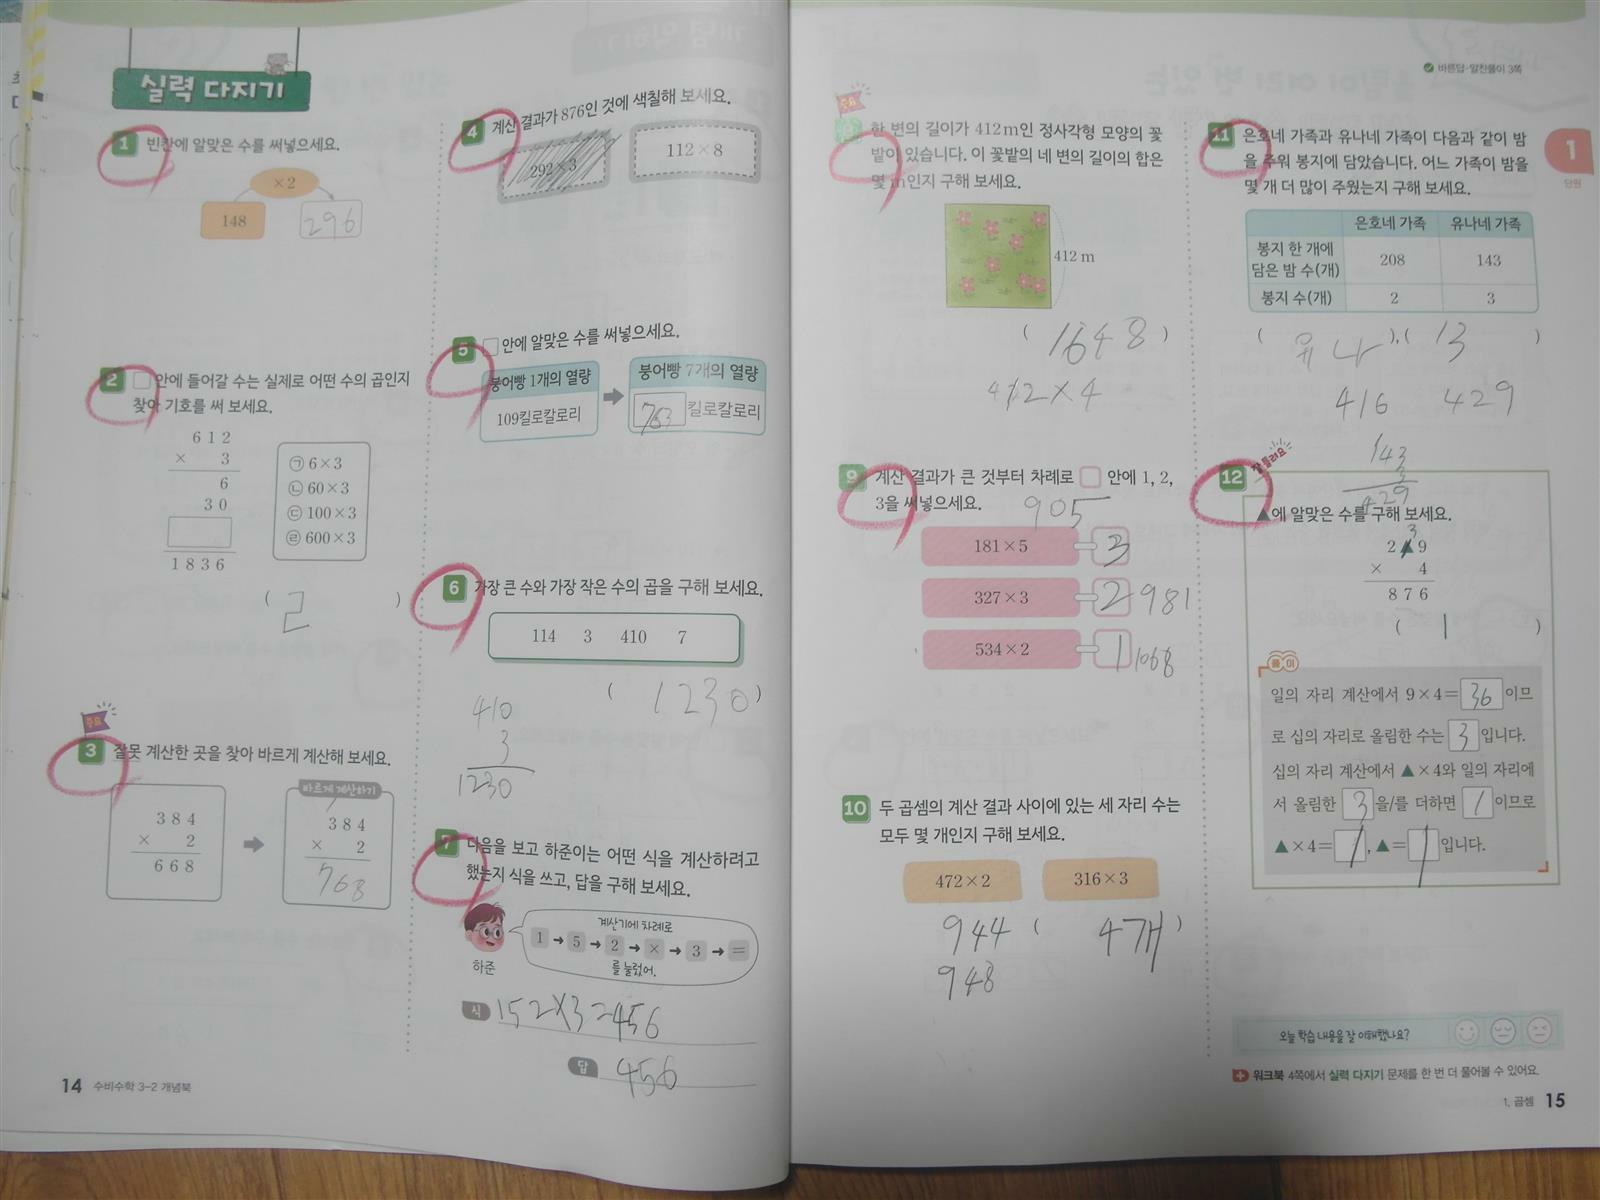 실력 다지기
1 빈칸에 알맞은 수를 써넣으세요.
×2
148 296
2 □안에 들어갈 수는 실제로 어떤 수의 곱인지
찾아 기호를 써 보세요.
612
× 3
6
30
1836
㉠ 6×3
㉡ 60×3
㉢ 100×3
㉣ 600×3
( ㄹ )
주요
3 잘못 계산한 곳을 찾아 바르게 계산해 보세요.
384
× 2
668
바르게 계산하기
384
× 2
768
4 계산 결과가 876인 것에 색칠해 보세요.
292×3 112×8
5 □안에 알맞은 수를 써넣으세요.
붕어빵 1개의 열량 붕어빵 7개의 열량
109킬로칼로리 763 킬로칼로리
6 가장 큰 수와 가장 작은 수의 곱을 구해 보세요.
114 3 410 7
( 1230 )
410
3
1230
7 다음을 보고 하준이는 어떤 식을 계산하려고
했는지 식을 쓰고, 답을 구해 보세요.
계산기에 차례로
1 → 5 → 2 → × → 3 → =
를 눌렀어.
하준
식 152×3=456
답 456
14 수비수학 3-2 개념북
바른답·알찬풀이 3쪽
한 변의 길이가 412 m인 정사각형 모양의 꽃
밭이 있습니다. 이 꽃밭의 네 변의 길이의 합은
몇 m인지 구해 보세요.
412 m
( 1648 )
412×4
9 계산 결과가 큰 것부터 차례로 □ 안에 1, 2,
3을 써넣으세요.
905
181×5 3
327×3 2 981
534×2 1 1068
10 두 곱셈의 계산 결과 사이에 있는 세 자리 수는
모두 몇 개인지 구해 보세요.
472×2 316×3
944 ( 4개 )
948
11 은호네 가족과 유나네 가족이 다음과 같이 밤
을 주워 봉지에 담았습니다. 어느 가족이 밤을
몇 개 더 많이 주웠는지 구해 보세요.
은호네 가족 유나네 가족
봉지 한 개에
담은 밤 수(개) 208 143
봉지 수(개) 2 3
( 유나 ), ( 13 )
416 429
143
3
429
1
단원
12 잘 틀려요
▲에 알맞은 수를 구해 보세요.
3
2▲9
× 4
876
( 1 )
풀이
일의 자리 계산에서 9×4=36 이므
로 십의 자리로 올림한 수는 3 입니다.
십의 자리 계산에서 ▲×4와 일의 자리에
서 올림한 3 을/를 더하면 1 이므로
▲×4=1, ▲=1 입니다.
오늘 학습 내용을 잘 이해했나요?
워크북 4쪽에서 실력 다지기 문제를 한 번 더 풀어볼 수 있어요.
1. 곱셈 15